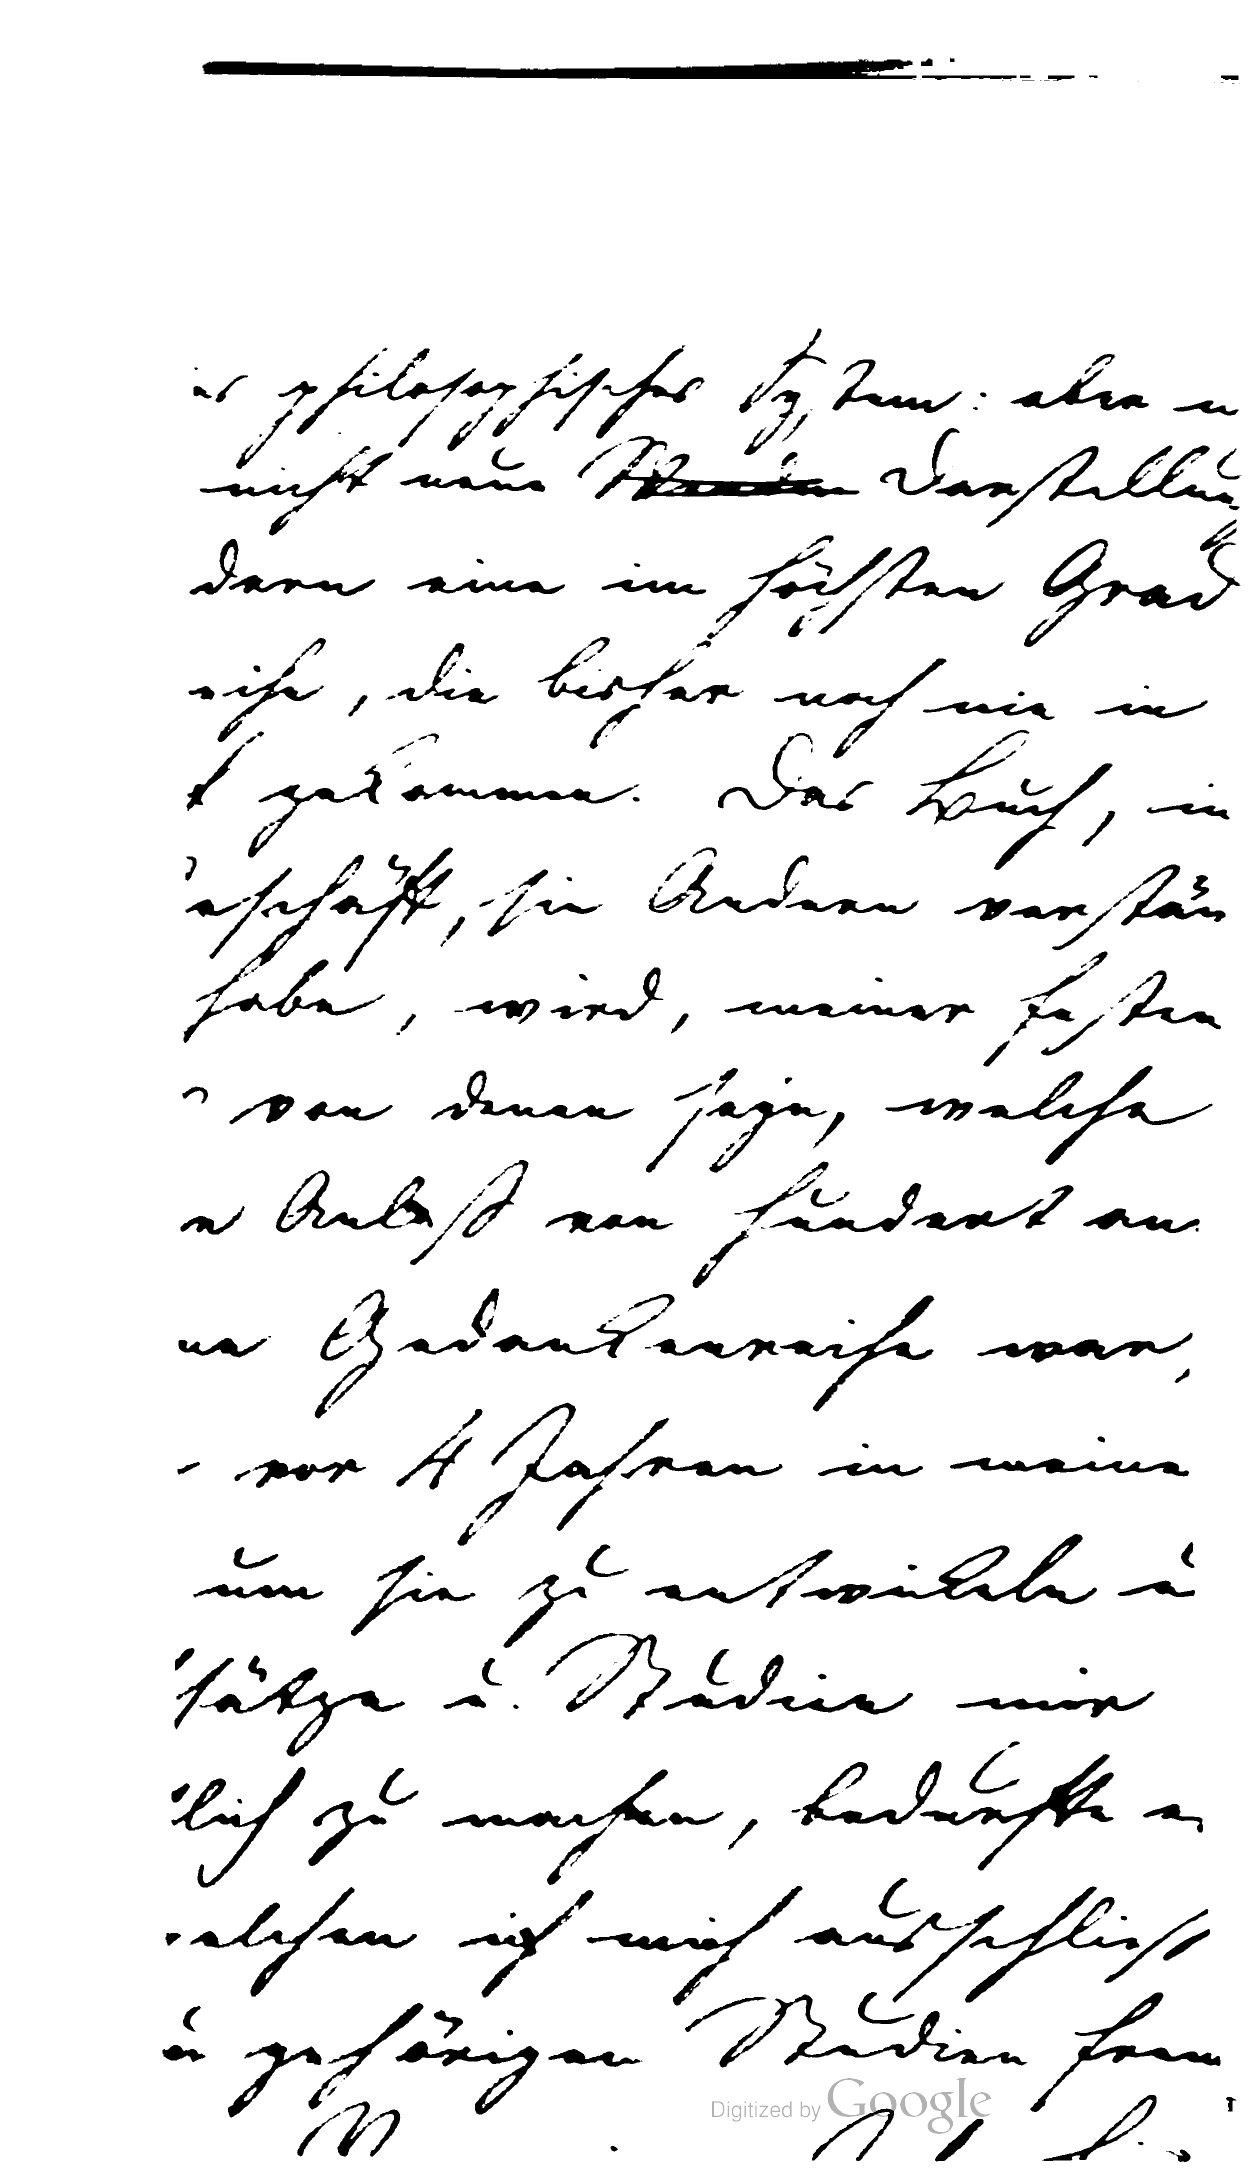 es philosophisches System: aber n
nicht neue Darstellung
dern eine im höchsten Grad
eihe, die bisher noch nie in
t gekommen. Das Buch, in
eschäft, sie Andern verstän
habe, wird, meiner festen
von denen seyn, welche
n Anlaß von hundert an
ne Gedankenreihe war,
vor 4 Jahren in meine
um sie zu entwickeln u
sätze u. Studien mir
lich zu machen, bedurfte e
elchen ich mich ausschließ
u gehörigen Studien frem
Digitized by Google